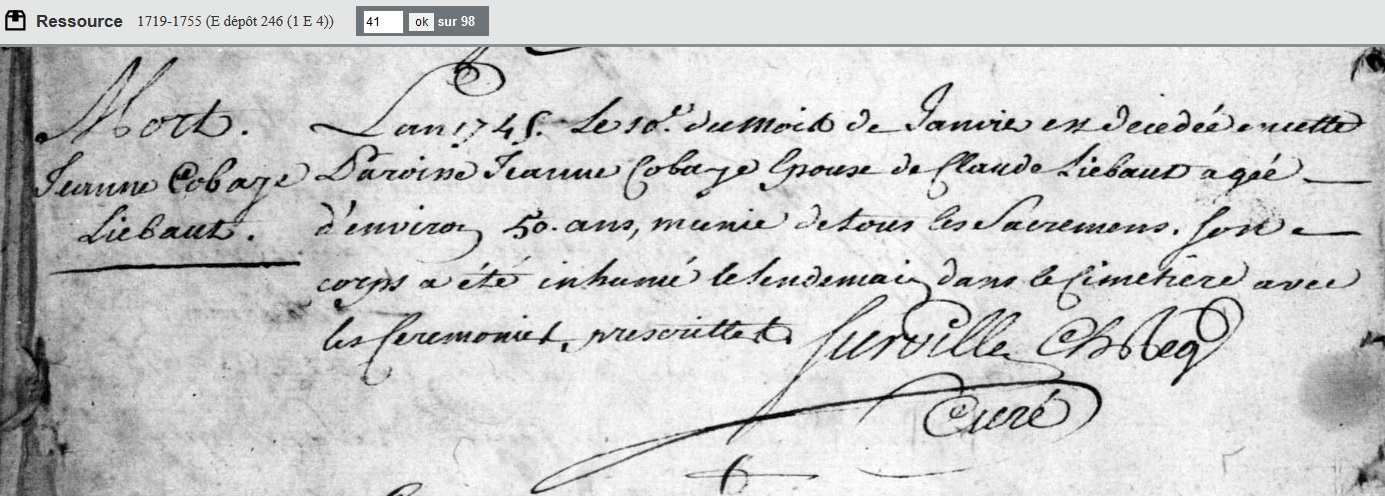 Ressource 1719-1755 (E dépôt 246 (1 E 4)) 41 ok sur 98
Mort.
Jeanne Cobaye
Liebaut.
L'an 1745. Le 10e. du mois de Janvie est decedée en cette
Paroisse Jeanne Cobaye Epouse de Claude Liebaut agée
d'environ 50. ans, munie de tous les Sacremens. Son
corps a été inhumé le lendemain dans le Cimetiere avec
les Ceremonies prescrittes. Surville Ch Reg
Curé